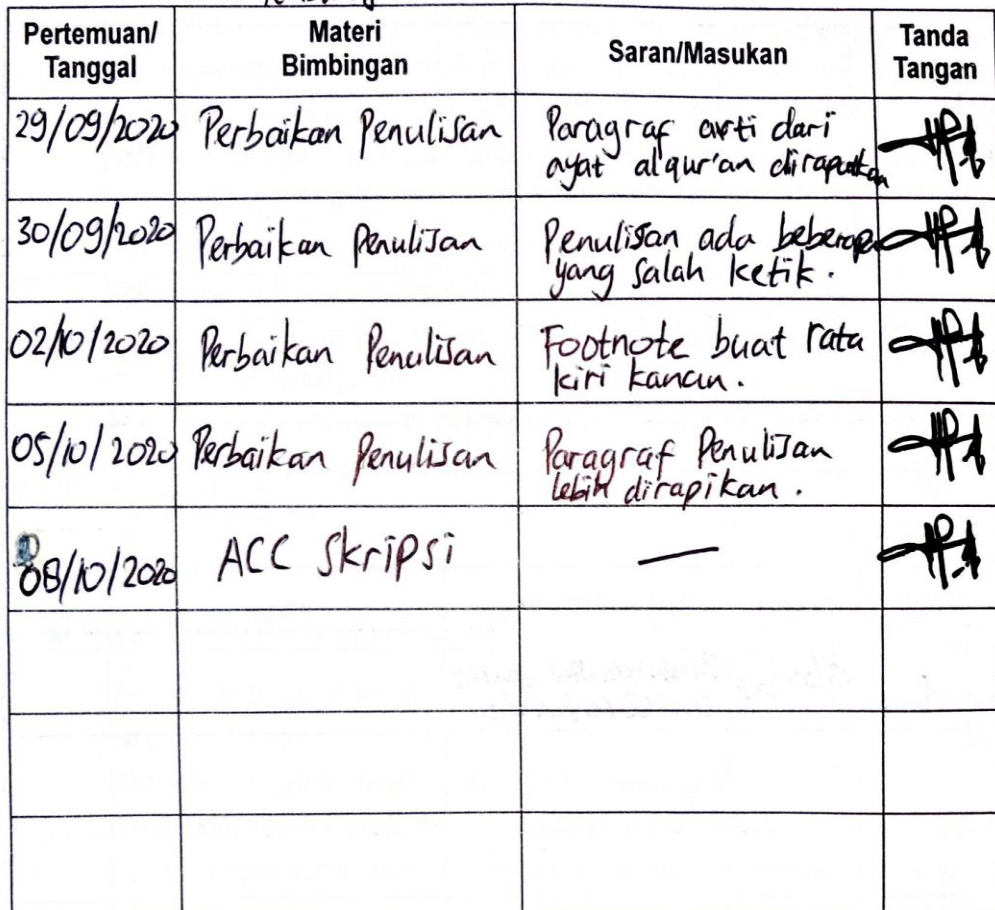 Pertemuan/ Materi Saran/Masukan Tanda
Tanggal Bimbingan Tangan
29/09/2020 Perbaikan Penulisan Paragraf arti dari
ayat alqur'an dirapatkan
30/09/2020 Perbaikan Penulisan Penulisan ada beberapa
yang salah ketik.
02/10/2020 Perbaikan Penulisan Footnote buat rata
kiri kanan.
05/10/2020 Perbaikan Penulisan Paragraf Penulisan
lebih dirapikan.
08/10/2020 ACC Skripsi —